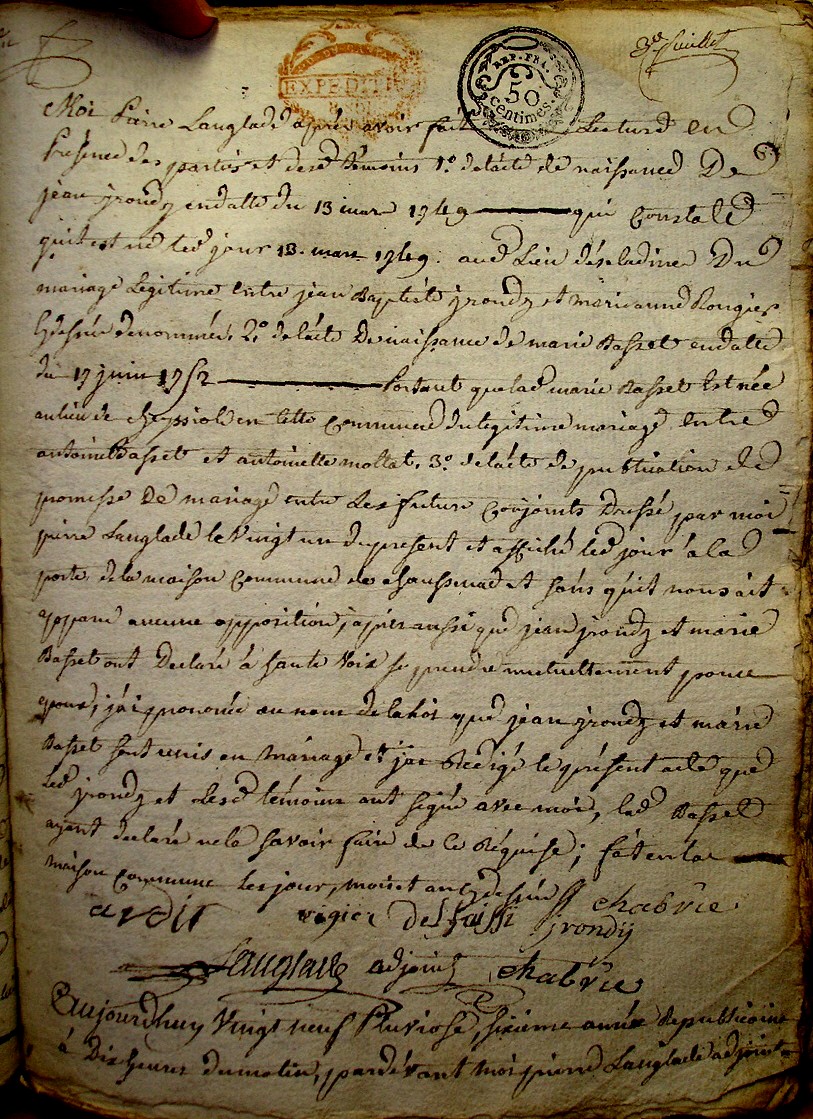 3e. feuillet
EXPEDITI
REP. FRA.
50
centimes.
Moi Pierre Langlade après avoir fait lecture en
présence des parties et desd. témoins 1o. de lacte de naissance De
jean jrondy en datte du 13 mars 1749 qui Constate
quil est né led. jour 13. mars 1749. aud. Lieu Du
mariage Légitime entre jean Baptiste jrondy et marie anne Rougier
Cy dessus dénommés, 2o. de lacte De naissance de marie Basset en datte
du 17 juin 1752 Portant que lad. marie Basset Est née
au lieu de en Cette Commune du legitime mariage Entre
antoine Basset et antoinette mollat, 3o. de lacte de publication de
promesse De mariage entre Les future Conjoints Dressé par moi
pierre Langlade le vingt un du present et affiché led. jour a la
porte de la maison Commune de chaussenac et sans quil nous ait
apparu aucune opposition, après aussi que jean jrondy et marie
Basset ont Declaré à haute voix se prendre mutuellement pour
Epoux, j'ai prononcé au nom de la loi que jean jrondy et marie
Basset sont unis en mariage et jai Redigé le présent acte que
Led. jrondy et Lesd. témoins ont signé avec moi, lad. Basset
ayant declaré ne la savoir faire de ce Réquise; fait en la
maison Commune les jour, mois et an Cy dessus
vigier chabrie
jrondy
Langlade adjoint chabrie
Aujourdhuy Vingt neuf Pluviose, sixieme année Republicaine
à Dix heures du matin, pardevant Moi pierre Langlade adjoint